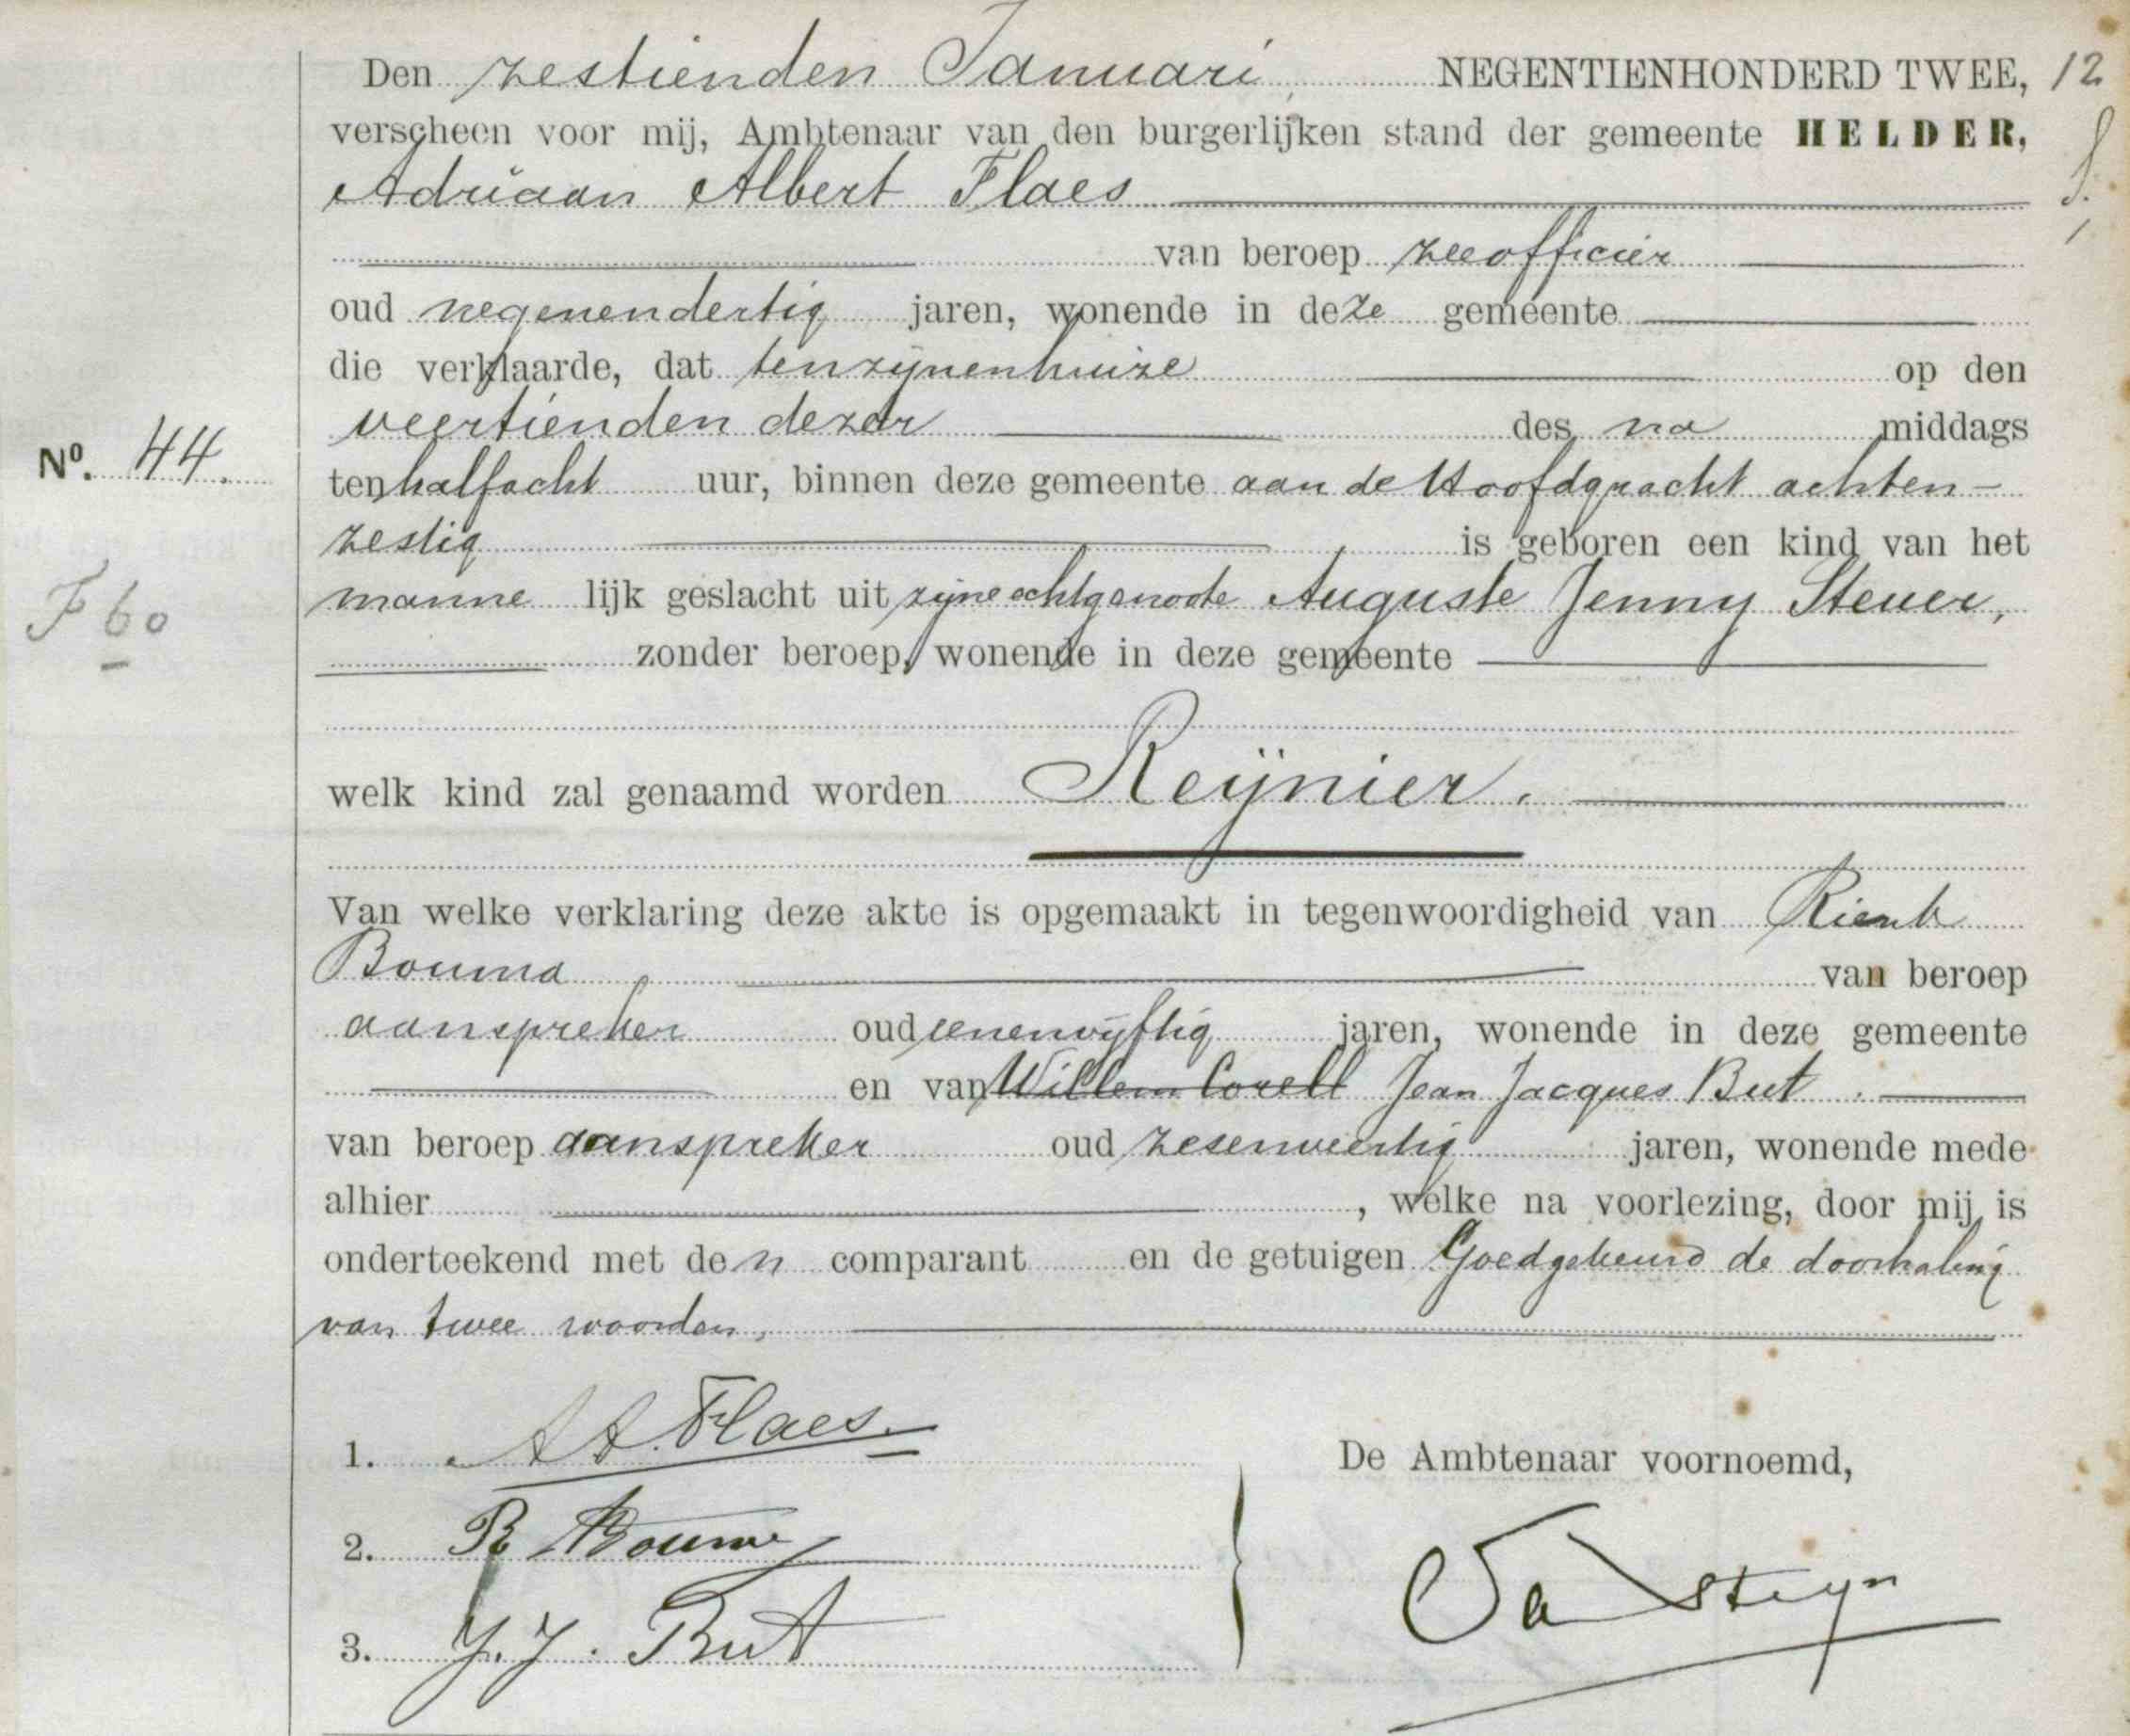 Den zestienden Januari NEGENTIENHONDERD TWEE, 12
verscheen voor mij, Ambtenaar van den burgerlijken stand der gemeente HELDER,
Adriaan Albert Flaes
van beroep zeeofficier
oud negenendertig jaren, wonende in deze gemeente
die verklaarde, dat tenzijnenhuize op den
veertienden dezer des na middags
ten halfacht uur, binnen deze gemeente aan de Hoofdgracht achten-
No. 44.
zestig is geboren een kind van het
F 60
mannelijk geslacht uit zijne echtgenoote Auguste Jenny Steuer,
zonder beroep, wonende in deze gemeente
welk kind zal genaamd worden Reijnier.
Van welke verklaring deze akte is opgemaakt in tegenwoordigheid van Rienk
Bouma van beroep
aanspreker oud eenenvijftig jaren, wonende in deze gemeente
en van Willem Corell Jean Jacques But
van beroep aanspreker oud zesenveertig jaren, wonende mede
alhier, welke na voorlezing, door mij is
onderteekend met den comparant en de getuigen Goedgekeurd de doorhaling
van twee woorden.
1. A A. Flaes.
De Ambtenaar voornoemd,
2. R Bouma
3. J. J. But